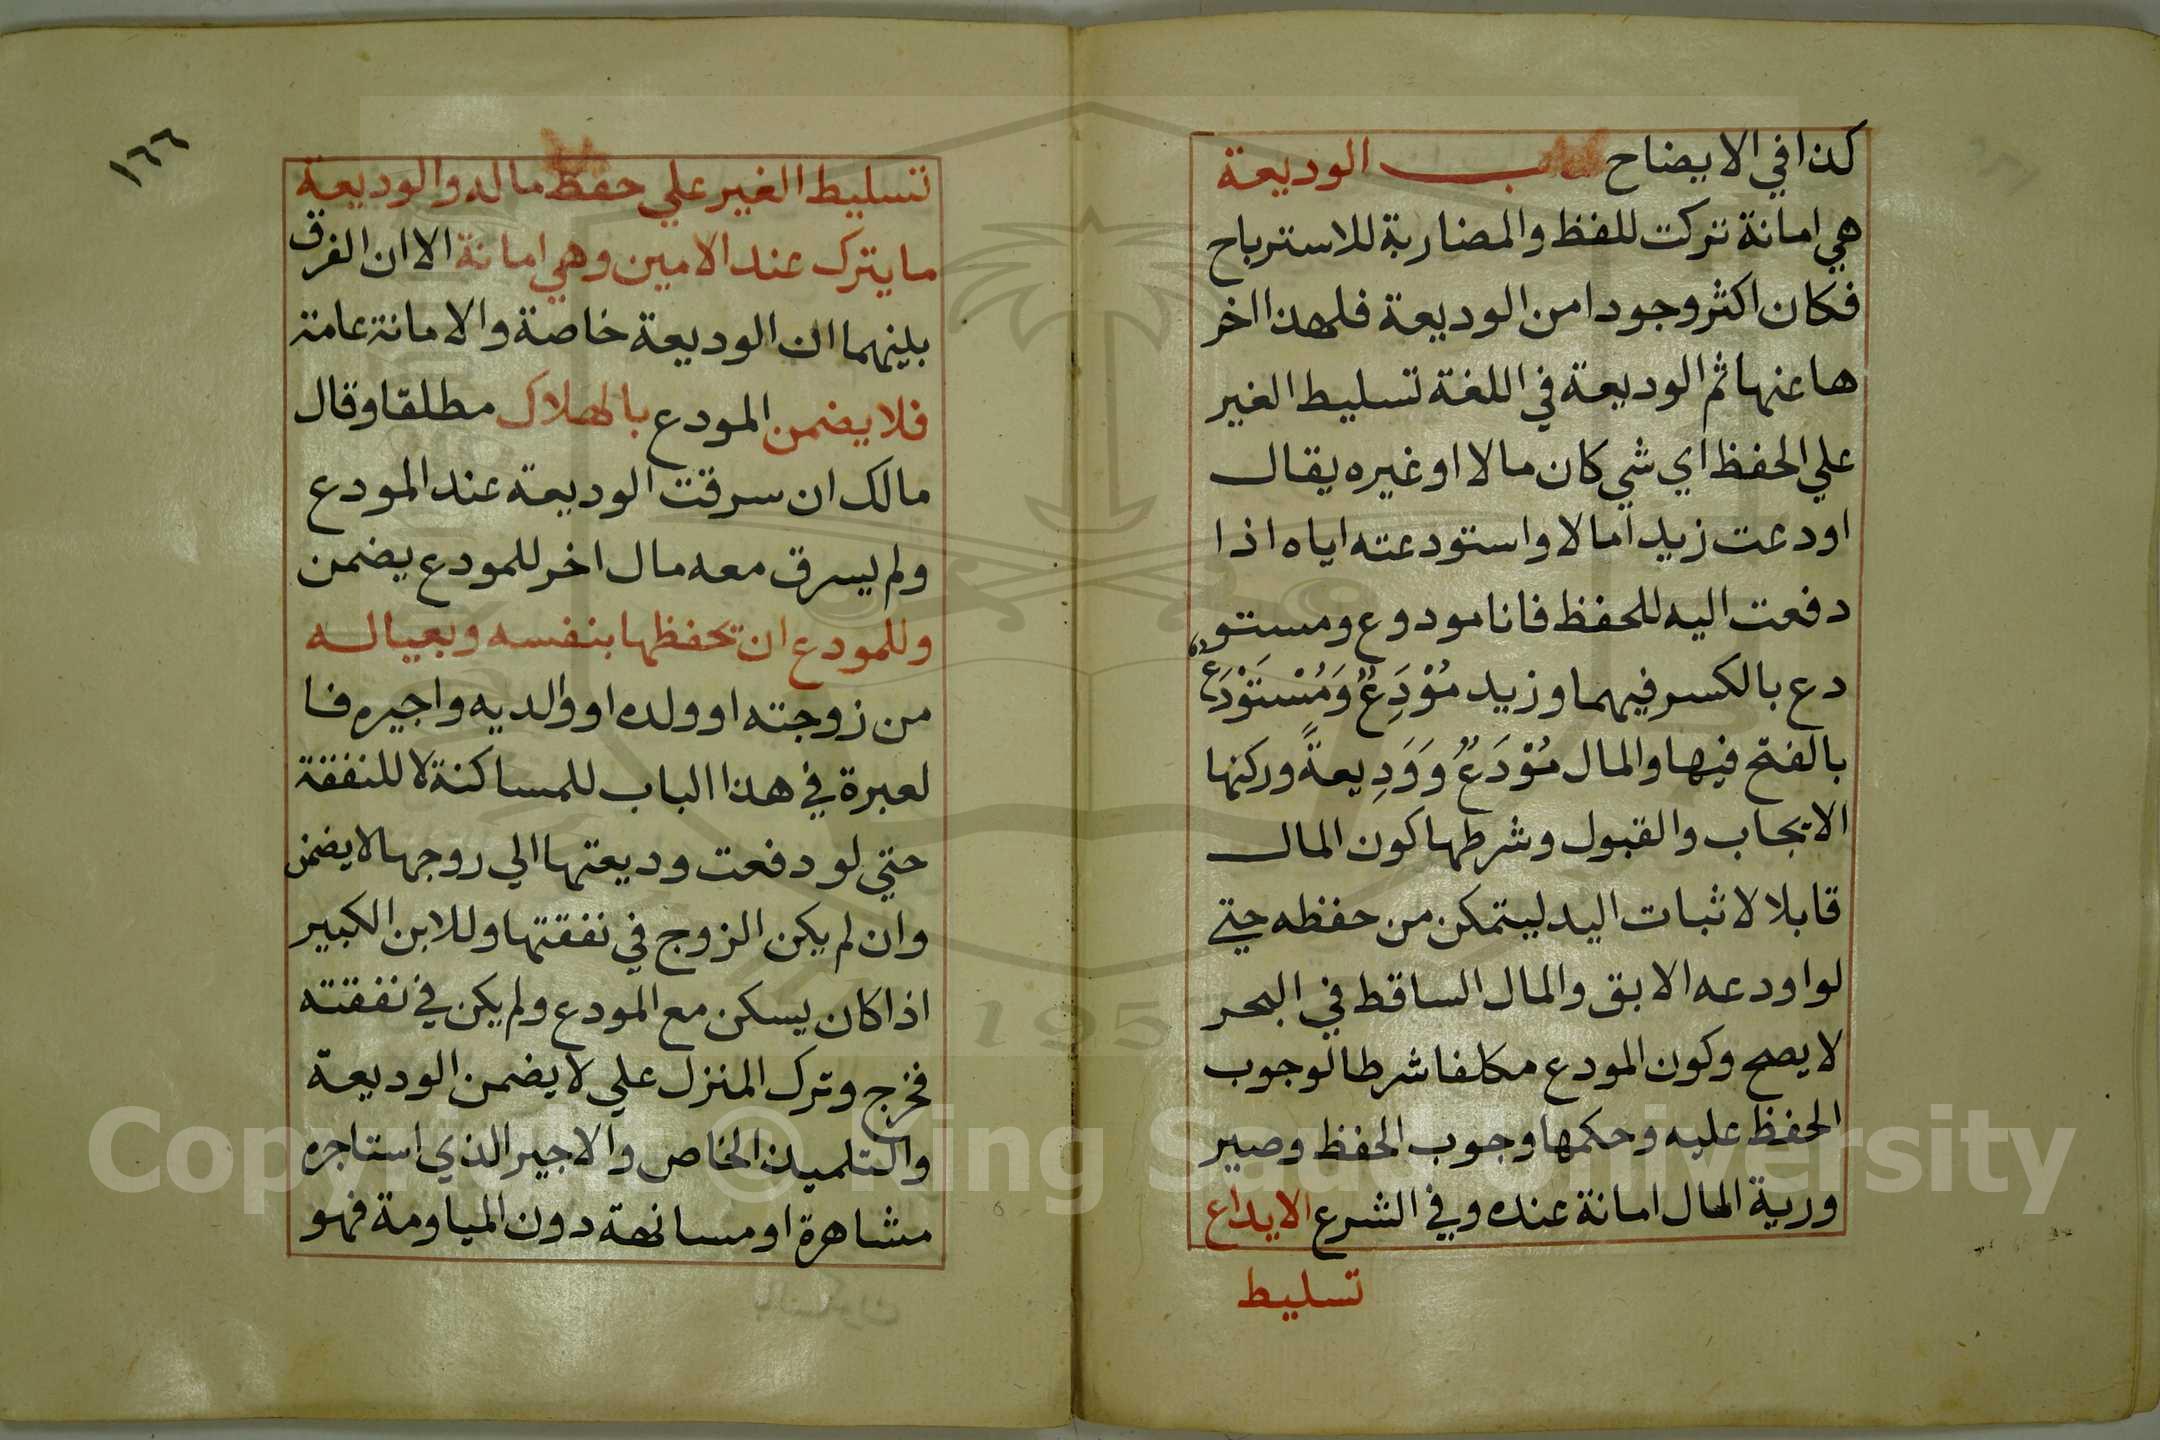 كذا في الايضاح كتاب الوديعة
هي امانة تركت للفظ والمضاربة للاسترباح
فكان اكثر وجودا من الوديعة فلهذا اخر
ها عنها ثم الوديعة في اللغة تسليط الغير
علي الحفظ اي شي كان مالا او غيره يقال
اودعت زيدا مالا واستودعته اياه اذا
دفعت اليه للحفظ فانا مودوع ومستو
دع بالكسر فيهما وزيد مُوْدَِعٌ وَمُسْتَوْدَعٌ
بالفتح فيها والمال مُوْدَعٌ وَوَدِيعةً وركنها
الايجاب والقبول وشرطها كون المال
قابلا لاثبات اليد ليتمكن من حفظه حتي
لو اودعه الابق والمال الساقط في البحر
لا يصح وكون المودع مكلفا شرطا لوجوب
الحفظ عليه وحكمها وجوب الحفظ وصير
ورية المال امانة عنده وفي الشرع الايداع
تسليط
١٦٦
تسليط الغير علي حفظ ماله والوديعة
ما يترك عند الامين وهي امانة الا ان الفرق
بينهما ان الوديعة خاصة والامانة عامة
فلا يضمن المودع بالهلاك مطلقا وقال
مالك ان سرقت الوديعة عند المودع
ولم يسرق معه مال اخر للمودع يضمن
وللمودع ان تحفظها بنفسه وبعياله
من زوجته او ولده او والديه واجيره فا
لعبرة في هذا الباب للمساكنة لا للنفقة
حتي لو دفعت وديعتها الي روجها لا يضمن
وان لم يكن الزوج في نفقتها وللابن الكبير
اذا كان يسكن مع المودع ولم يكن في نفقته
فخرج وترك المنزل علي لا يضمن الوديعة
والتلميذ الخاص والاجير الذي استاجره
مشاهرة او مسانهة دون المياومة فهو
Copyright © King Saud University
1957